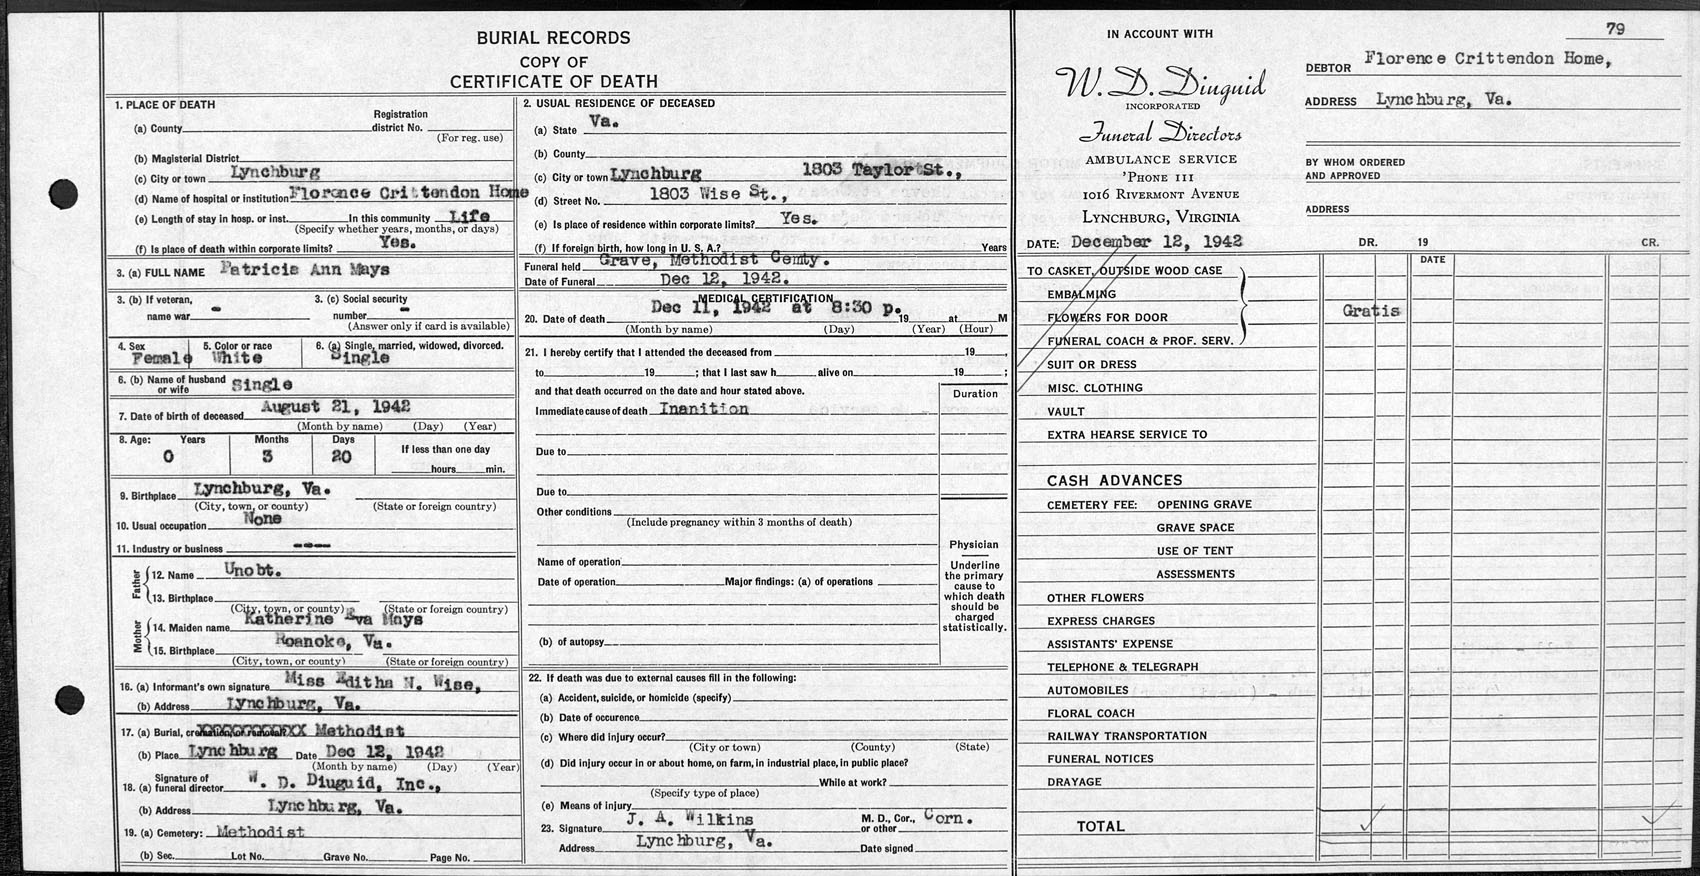 BURIAL RECORDS
COPY OF
CERTIFICATE OF DEATH
1. PLACE OF DEATH
Registration
(a) County district No.
(For reg. use)
(b) Magisterial District
(c) City or town Lynchburg
(d) Name of hospital or institution Florence Crittendon Home
(e) Length of stay in hosp. or inst. In this community Life
(Specify whether years, months, or days)
(f) Is place of death within corporate limits? Yes.
3. (a) FULL NAME Patricia Ann Mays
3. (b) If veteran, 3. (c) Social security
name war - number -
(Answer only if card is available)
4. Sex 5. Color or race 6. (a) Single, married, widowed, divorced.
Female White Single
6. (b) Name of husband
or wife Single
7. Date of birth of deceased August 21, 1942
(Month by name) (Day) (Year)
8. Age: Years Months Days If less than one day
0 3 20 hours min.
9. Birthplace Lynchburg, Va.
(City, town, or county) (State or foreign country)
10. Usual occupation None
11. Industry or business ----
Father
12. Name Unobt.
13. Birthplace
(City, town, or county) (State or foreign country)
Mother
14. Maiden name Katherine Eva Mays
15. Birthplace Roanoke, Va.
(City, town, or county) (State or foreign country)
16. (a) Informant's own signature Miss Editha N. Wise,
(b) Address Lynchburg, Va.
17. (a) Burial, cremation, or removal XX Methodist
(b) Place Lynchburg Date Dec 12, 1942
(Month by name) (Day) (Year)
Signature of
18. (a) funeral director W. D. Diuguid, Inc.,
(b) Address Lynchburg, Va.
19. (a) Cemetery: Methodist
(b) Sec. Lot No. Grave No. Page No.
2. USUAL RESIDENCE OF DECEASED
(a) State Va.
(b) County
(c) City or town Lynchburg 1803 Taylor St.,
(d) Street No. 1803 Wise St.,
(e) Is place of residence within corporate limits? Yes.
(f) If foreign birth, how long in U. S. A.? Years
Funeral held Grave, Methodist Cemty.
Date of Funeral Dec 12, 1942.
MEDICAL CERTIFICATION
20. Date of death Dec 11, 1942 at 8:30 p. 19 at M
(Month by name) (Day) (Year) (Hour)
21. I hereby certify that I attended the deceased from 19 ,
to 19 ; that I last saw h alive on 19 ;
and that death occurred on the date and hour stated above.
Duration
Immediate cause of death Inanition
Due to
Due to
Other conditions
(Include pregnancy within 3 months of death)
Name of operation
Date of operation Major findings: (a) of operations
(b) of autopsy
Physician
Underline
the primary
cause to
which death
should be
charged
statistically.
22. If death was due to external causes fill in the following:
(a) Accident, suicide, or homicide (specify)
(b) Date of occurence
(c) Where did injury occur?
(City or town) (County) (State)
(d) Did injury occur in or about home, on farm, in industrial place, in public place?
While at work?
(Specify type of place)
(e) Means of injury
23. Signature J. A. Wilkins M. D., Cor., or other Corn.
Address Lynchburg, Va. Date signed
79
IN ACCOUNT WITH
W. D. Diuguid
INCORPORATED
Funeral Directors
AMBULANCE SERVICE
'PHONE 111
1016 RIVERMONT AVENUE
LYNCHBURG, VIRGINIA
DEBTOR Florence Crittendon Home,
ADDRESS Lynchburg, Va.
BY WHOM ORDERED
AND APPROVED
ADDRESS
DATE: December 12, 1942 DR. 19 CR.
DATE
TO CASKET, OUTSIDE WOOD CASE
EMBALMING
FLOWERS FOR DOOR Gratis
FUNERAL COACH & PROF. SERV.
SUIT OR DRESS
MISC. CLOTHING
VAULT
EXTRA HEARSE SERVICE TO
CASH ADVANCES
CEMETERY FEE: OPENING GRAVE
GRAVE SPACE
USE OF TENT
ASSESSMENTS
OTHER FLOWERS
EXPRESS CHARGES
ASSISTANTS' EXPENSE
TELEPHONE & TELEGRAPH
AUTOMOBILES
FLORAL COACH
RAILWAY TRANSPORTATION
FUNERAL NOTICES
DRAYAGE
TOTAL